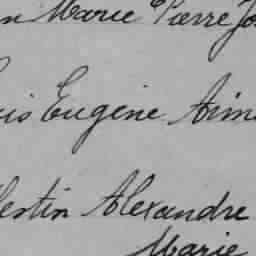 n Marie Pierre Jo
is Eugène Aim
lestin Alexandre
Marie